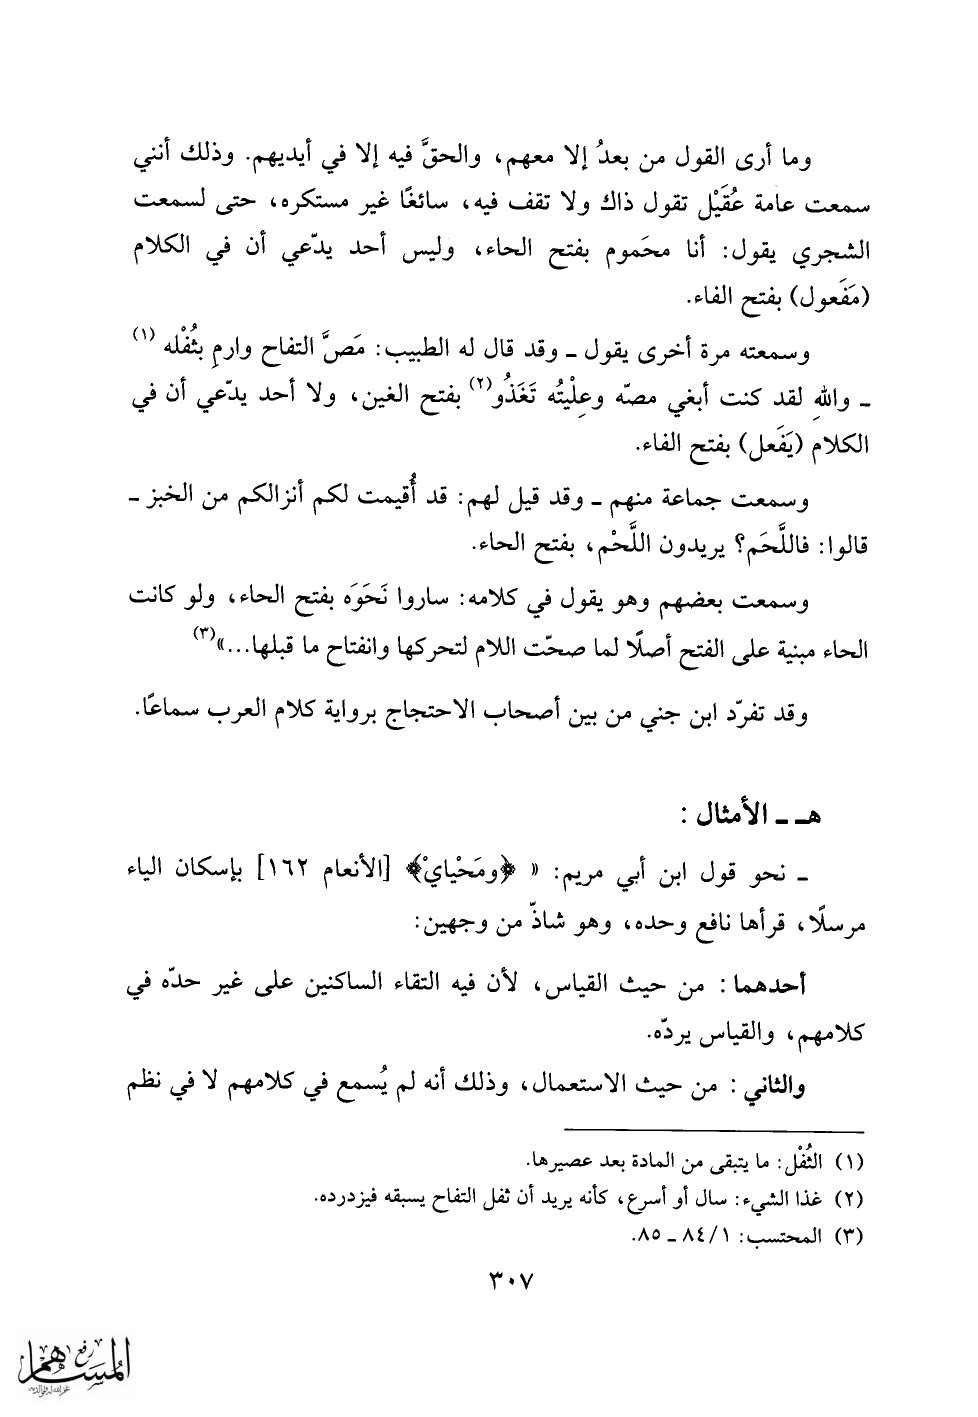 وما أرى القول من بعدُ إلا معهم، والحقَّ فيه إلا في أيديهم. وذلك أنني
سمعت عامة عُقَيْل تقول ذاك ولا تقف فيه، سائغًا غير مستكره، حتى لسمعت
الشجري يقول: أنا محَموم بفتح الحاء، وليس أحد يدّعي أن في الكلام
(مَفَعول) بفتح الفاء.
وسمعته مرة أخرى يقول ـ وقد قال له الطبيب: مَصَّ التفاح وارمِ بثُفْله (١)
ـ واللهِ لقد كنت أبغي مصّه وعِلْيتُه تَغَذُو(٢) بفتح الغين، ولا أحد يدّعي أن في
الكلام (يَفَعل) بفتح الفاء.
وسمعت جماعة منهم ـ وقد قيل لهم: قد أُقيمت لكم أنزالكم من الخبز ـ
قالوا: فاللَّحَم؟ يريدون اللَّحْم، بفتح الحاء.
وسمعت بعضهم وهو يقول في كلامه: ساروا نَحَوَه بفتح الحاء، ولو كانت
الحاء مبنية على الفتح أصلًا لما صحّت اللام لتحركها وانفتاح ما قبلها...»(٣)
وقد تفرّد ابن جني من بين أصحاب الاحتجاج برواية كلام العرب سماعًا.
هـ ـ الأمثال :
ـ نحو قول ابن أبي مريم: « ﴿ومَحْيايْ﴾ [الأنعام ١٦٢] بإسكان الياء
مرسلًا، قرأها نافع وحده، وهو شاذّ من وجهين:
أحدهما : من حيث القياس، لأن فيه التقاء الساكنين على غير حدّه في
كلامهم، والقياس يردّه.
والثاني : من حيث الاستعمال، وذلك أنه لم يُسمع في كلامهم لا في نظم
(١) الثُفْل: ما يتبقى من المادة بعد عصيرها.
(٢) غذا الشيء: سال أو أسرع، كأنه يريد أن ثفل التفاح يسبقه فيزدرده.
(٣) المحتسب: ١/ ٨٤ ـ ٨٥.
٣٠٧
رفع
المساهم